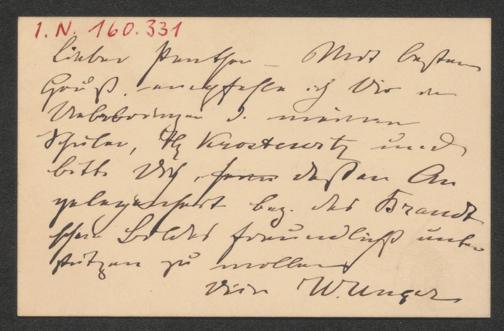 I. N. 160.331
Lieber Panther – Mit besten
Gruß empfehle ich Dir den
Ueberbringer d. meinen
Schüler, H. Krostewitz und
bitte Dich, dessen An
gelegenheit bez. des Brandt
schen Bildes freundlichst unter
stützen zu wollen
Dein W. Unger